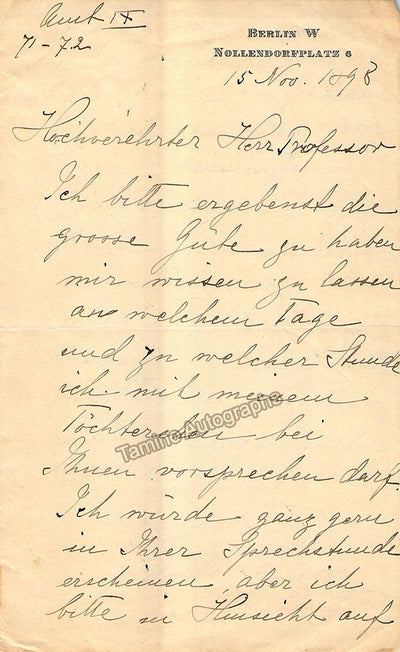 Amt IX
71-72
BERLIN W
NOLLENDORFPLATZ 6
15 Nov. 1898
Hochverehrter Herr Professor
Ich bitte ergebenst die
grosse Güte zu haben
mir wissen zu lassen
an welchem Tage
und zu welcher Stunde
ich mit meinem
Töchterchen bei
Ihnen vorsprechen darf.
Ich würde ganz gern
in Ihrer Sprechstunde
erscheinen, aber ich
bitte in Hinsicht auf
Tamino Autographs